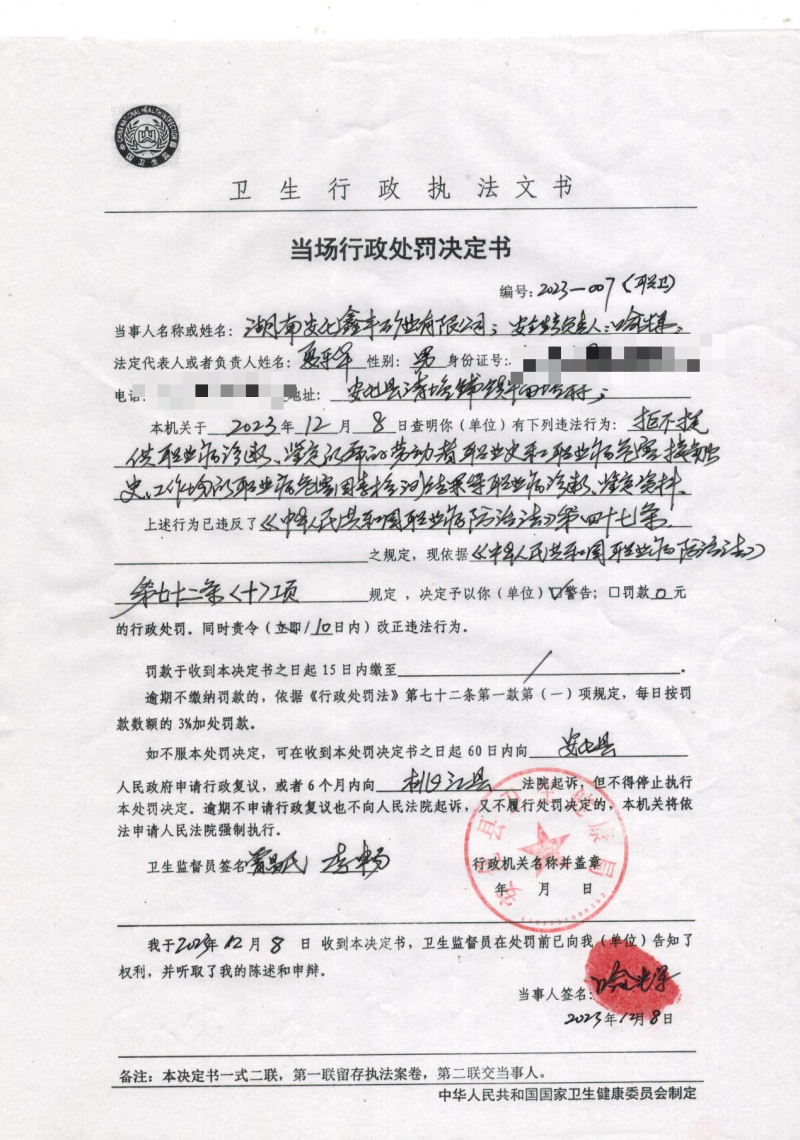 CHINA NATIONAL HEALTH INSPECTION
中国卫生监督
卫生行政执法文书
当场行政处罚决定书
编号：2023—007（职卫）
当事人名称或姓名：湖南安化鑫丰矿业有限公司；安全生产负责人：
法定代表人或者负责人姓名： 性别：男 身份证号：
电话： 地址：安化县清塘铺镇 村；
本机关于 2023 年 12 月 8 日查明你（单位）有下列违法行为：拒不提
供职业病诊断、鉴定所需的劳动者职业史和职业病危害接触
史、工作场所职业病危害因素检测结果等职业病诊断、鉴定资料。
上述行为已违反了《中华人民共和国职业病防治法》第四十七条
之规定，现依据《中华人民共和国职业病防治法》
第七十二条（十）项 规定，决定予以你（单位）☑警告；□罚款 0 元
的行政处罚。同时责令（立即/10日内）改正违法行为。
罚款于收到本决定书之日起 15 日内缴至 / 。
逾期不缴纳罚款的，依据《行政处罚法》第七十二条第一款第（一）项规定，每日按罚
款数额的 3%加处罚款。
如不服本处罚决定，可在收到本处罚决定书之日起 60 日内向 安化县
人民政府申请行政复议，或者 6 个月内向 桃江县 法院起诉，但不得停止执行
本处罚决定。逾期不申请行政复议也不向人民法院起诉，又不履行处罚决定的，本机关将依
法申请人民法院强制执行。
卫生监督员签名
行政机关名称并盖章
年 月 日
安化县卫生健康局
我于2023年12月8日 收到本决定书，卫生监督员在处罚前已向我（单位）告知了
权利，并听取了我的陈述和申辩。
当事人签名：
2023年12月8日
备注：本决定书一式二联，第一联留存执法案卷，第二联交当事人。
中华人民共和国国家卫生健康委员会制定